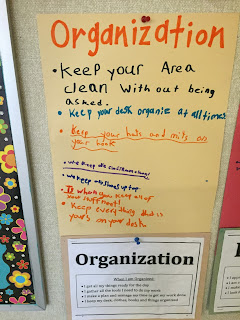 Organization
• Keep your Area
clean With out being
asked.
• Keep your desk organize at all times
• Keep your hats and mits on
your hook
• we keep
• It whats you keep all of
your supplies!
• Keep every thing that is
yours on your desk
Organization
When I am Organized:
• I get all my things ready for the day
• I gather all the tools I need to do my work
• I make a plan and manage my time to get my work done
• I keep my desk, cubbies, books and things organized